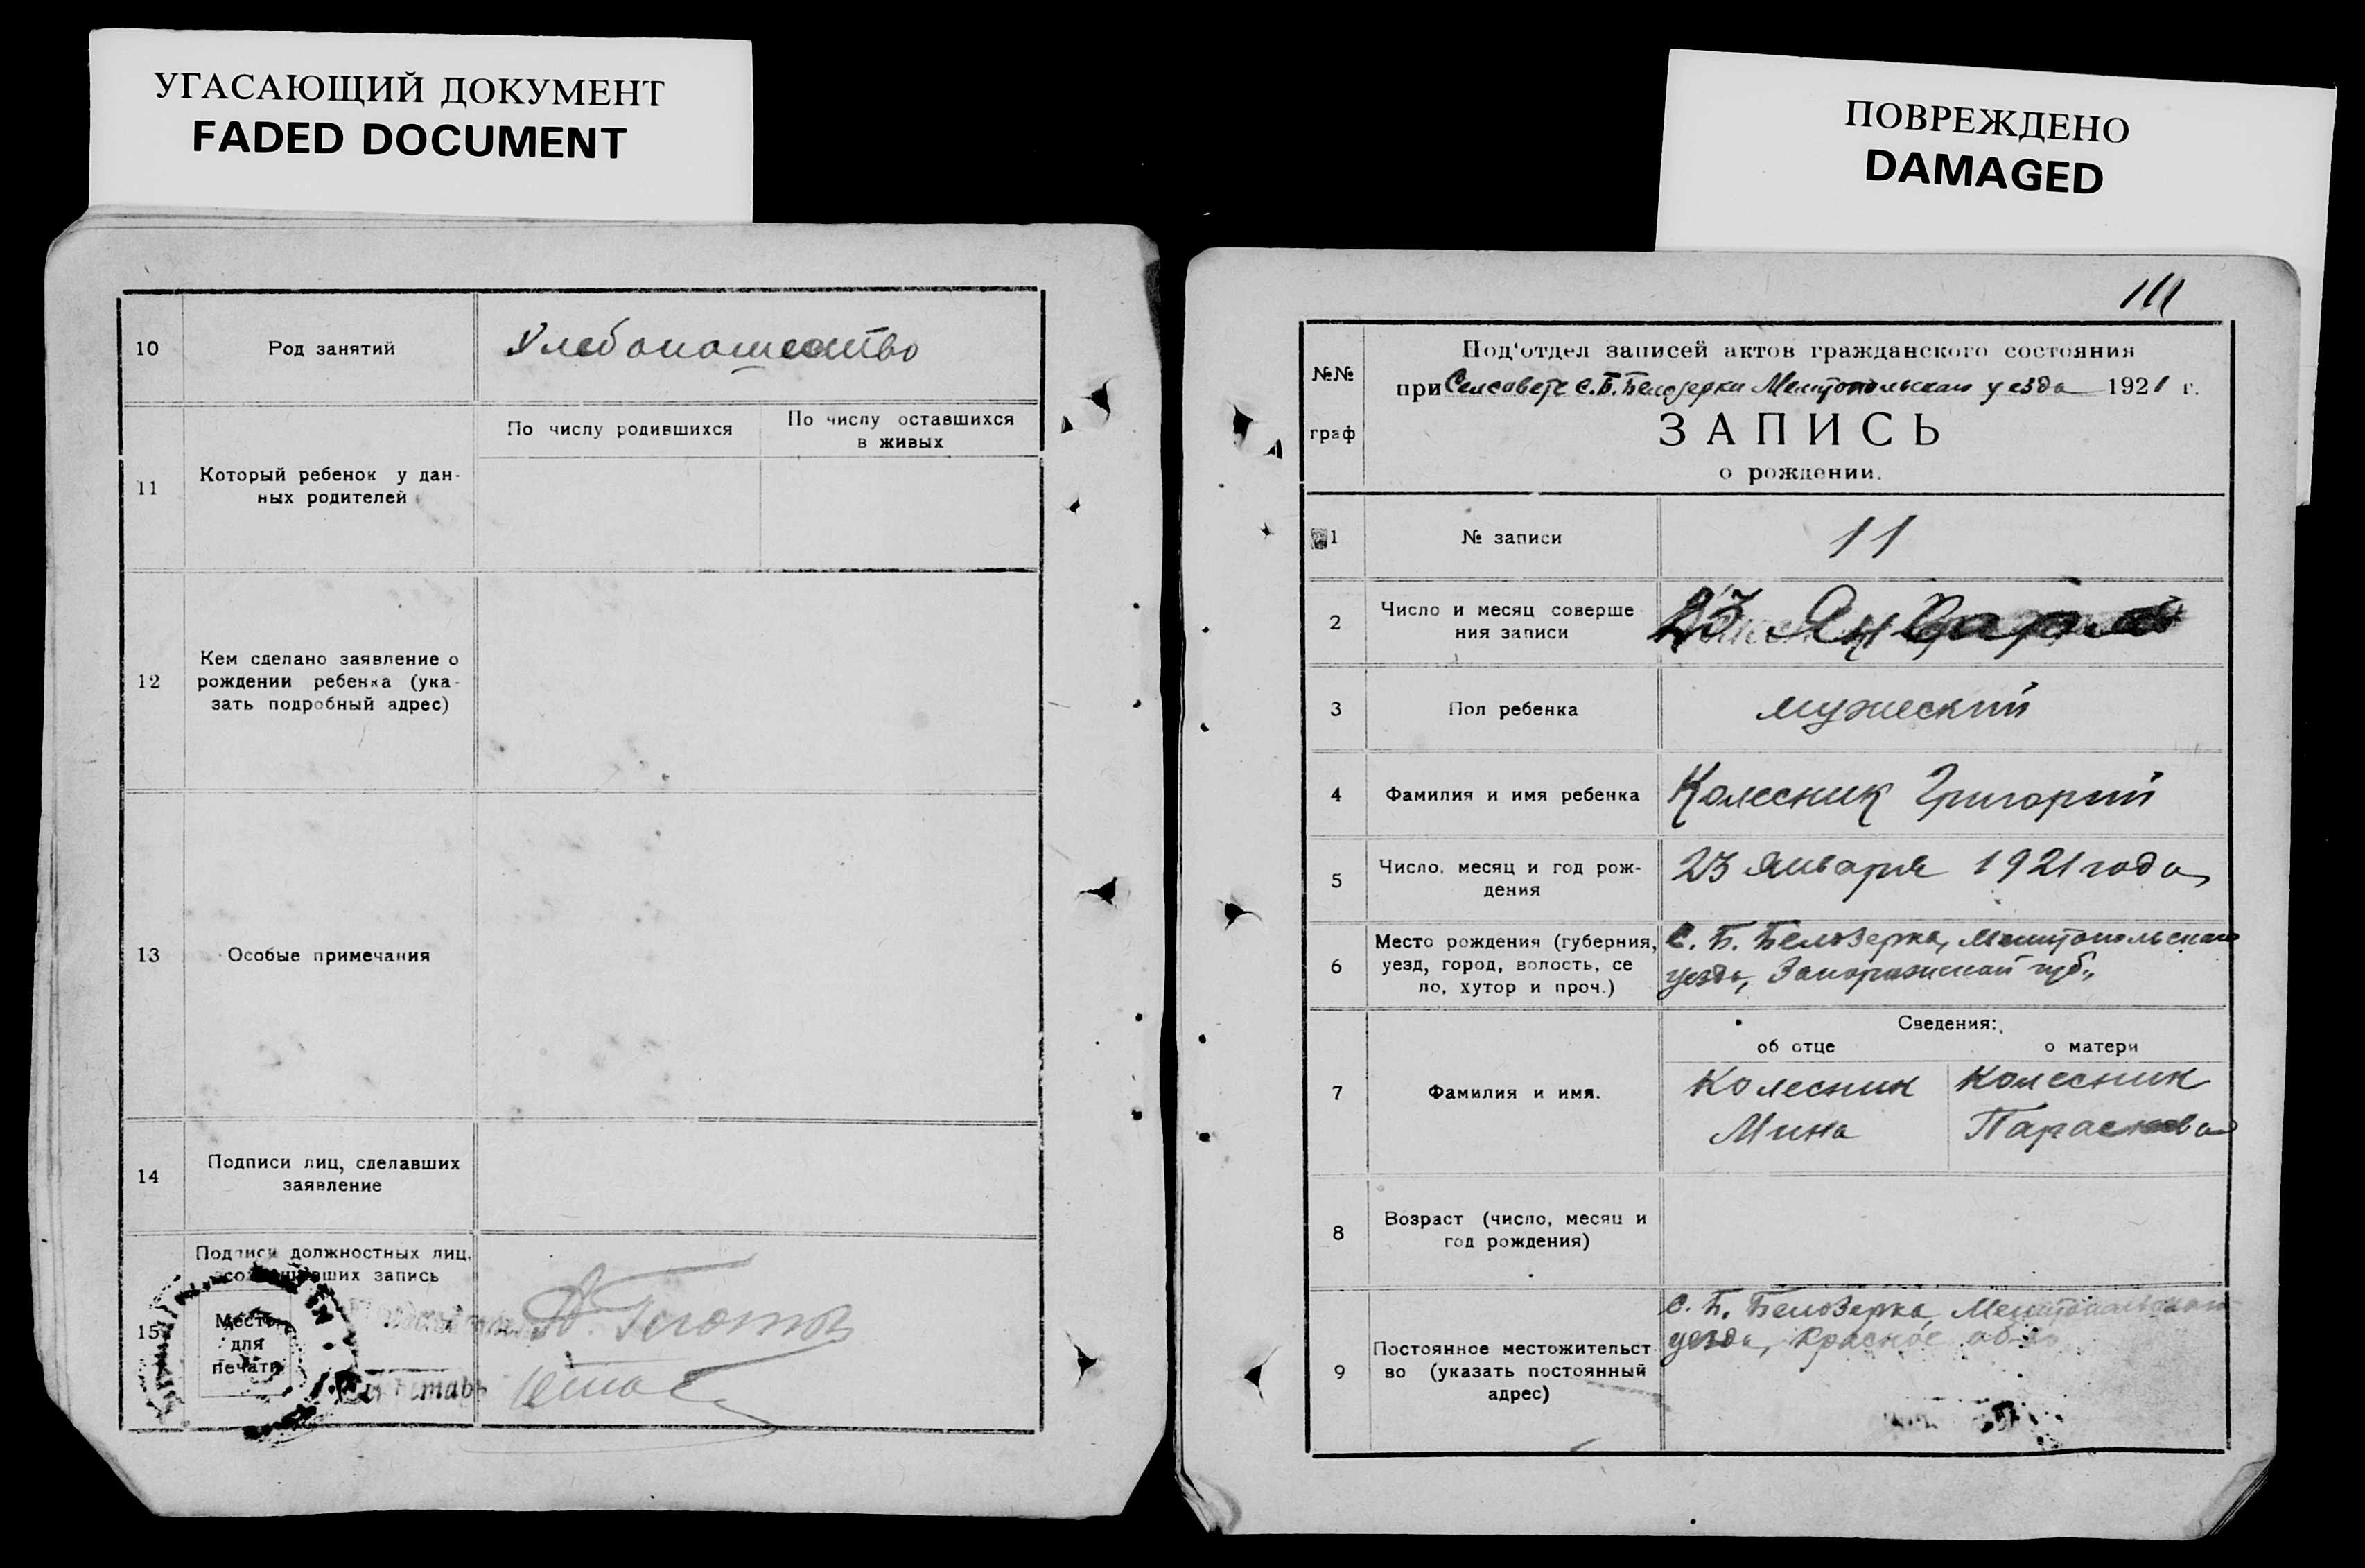 УГАСАЮЩИЙ ДОКУМЕНТ
FADED DOCUMENT
10
Род занятий
Хлебопашество
11
Который ребенок у дан-
ных родителей
По числу родившихся
По числу оставшихся
в живых
12
Кем сделано заявление о
рождении ребенка (ука-
зать подробный адрес)
13
Особые примечания
14
Подписи лиц, сделавших
заявление
15
Подписи должностных лиц,
совершивших запись
Место
для
печати
ПОВРЕЖДЕНО
DAMAGED
111
№№
граф
Под'отдел записей актов гражданского состояния
при Сельсовете с. Б. Белозерки Мелитопольскаго уезда 1921 г.
ЗАПИСЬ
о рождении.
1
№ записи
11
2
Число и месяц соверше
ния записи
23 Января
3
Пол ребенка
мужеский
4
Фамилия и имя ребенка
Колесник Григорий
5
Число, месяц и год рож-
дения
23 января 1921 года
6
Место рождения (губерния,
уезд, город, волость, се
ло, хутор и проч.)
С. Б. Белозерка, Мелитопольскаго
уезда, Запорожской губ.,
Сведения:
об отце
о матери
7
Фамилия и имя.
Колесник
Мина
Колесник
Параскева
8
Возраст (число, месяц и
год рождения)
9
Постоянное местожительст
во (указать постоянный
адрес)
С. Б. Белозерка, Мелитопольскаго
уезда,